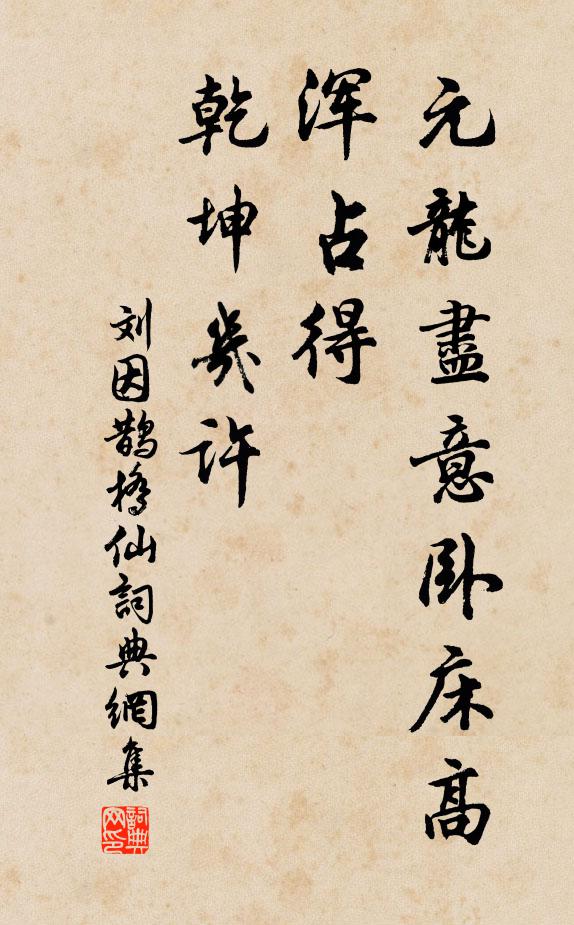 元龍盡意卧床高
浑占得
乾坤幾许
刘因鹊橋仙詞典網集
詞典網印